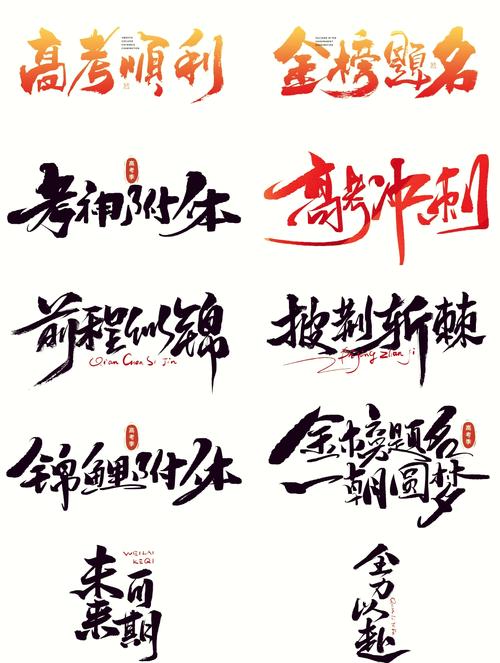 高考順利
金榜題名
高考季
考神附体
高考冲刺
前程似锦
Qian Chen Si Jin
披荆斩棘
锦鲤附体
高考季
金榜题名
一朝圆梦
高考季
未来可期
WEILAI
KEQI
全力以赴